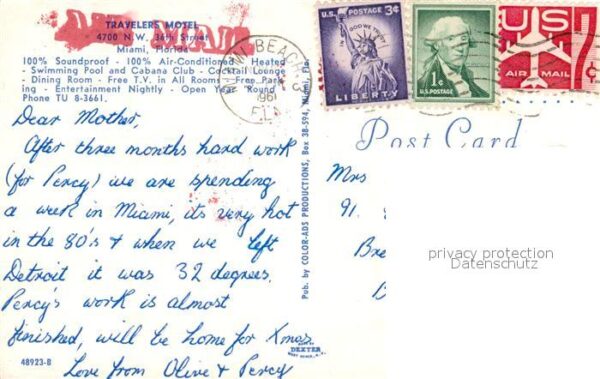 TRAVELERS MOTEL
4700 N.W. 36th Street
Miami, Florida
100% Soundproof - 100% Air-Conditioned - Heated
- Swimming Pool and Cabana Club - Cocktail Lounge
- Dining Room - Free T.V. in All Rooms - Free Park-
ing - Entertainment Nightly - Open Year Round
Phone TU 8-3661.
Dear Mother,
After three months hard work
(for Percy) we are spending
a week in Miami, its very hot
in the 80's & when we left
Detroit it was 32 degrees.
Percy's work is almost
finished, will be home for Xmas
Love from Olive & Percy
48923-B
DEXTER
Pub. by COLOR-ADS PRODUCTIONS, Box 38-594, Miami, Fla.
MIAMI BEACH
1961
U.S. POSTAGE 3¢
IN GOD WE TRUST
LIBERTY
1¢
U.S. POSTAGE
US
AIR MAIL
7¢
Post Card
Mrs
91.
Bre
privacy protection
Datenschutz